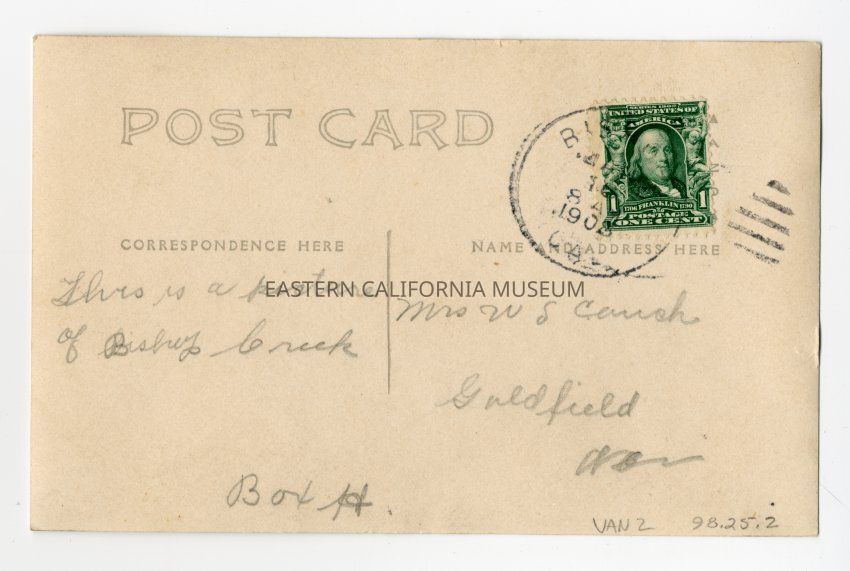 POST CARD
SERIES 1902
UNITED STATES OF
AMERICA
1 1706 FRANKLIN 1790 1
POSTAGE
ONE CENT
CORRESPONDENCE HERE
NAME AND ADDRESS HERE
This is a picture
of Bishop Creek
EASTERN CALIFORNIA MUSEUM
Mrs W S Couch
Goldfield
Nev
Box H.
VAN 2 98.25.2